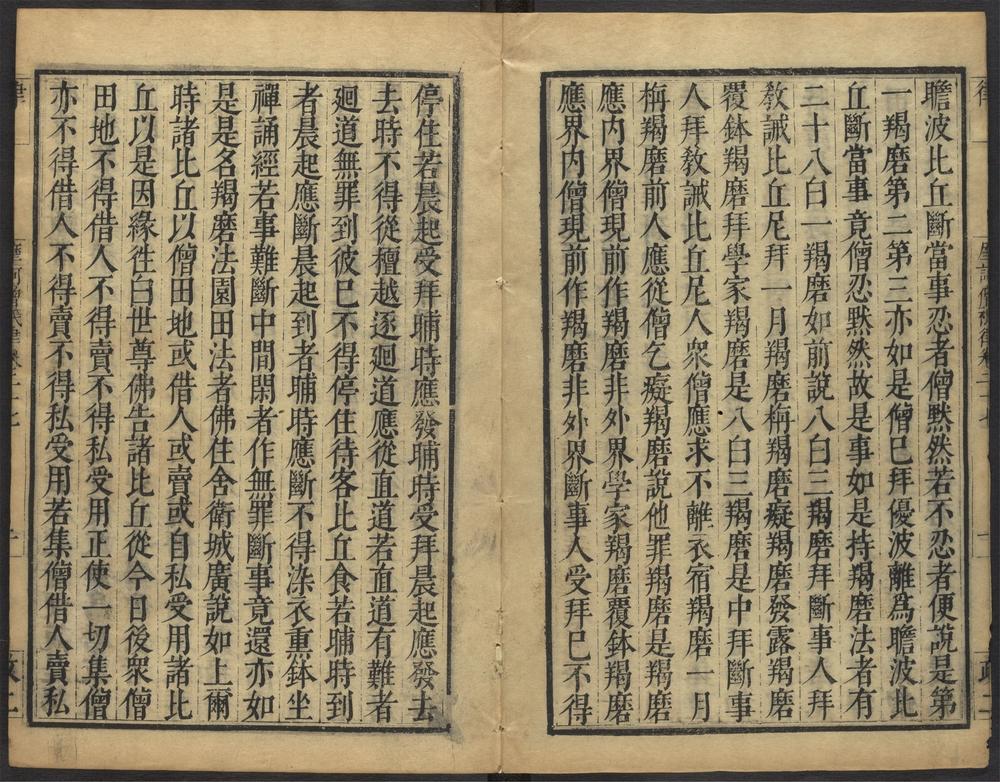 瞻波比丘斷當事忍者僧默然若不忍者便說是第
一羯磨第二第三亦如是僧已拜優波離為瞻波比
丘斷當事竟僧忍默然故是事如是持羯磨法者有
二十八白一羯磨如前說八白三羯磨拜斷事人拜
教誡比丘尼拜一月羯磨栴羯磨癡羯磨發露羯磨
覆鉢羯磨拜學家羯磨是八白三羯磨是中拜斷事
人拜教誡比丘尼人眾僧應求不離衣宿羯磨一月
栴羯磨前人應從僧乞癡羯磨說他罪羯磨是羯磨
應內界僧現前作羯磨非外界學家羯磨覆鉢羯磨
應界內僧現前作羯磨非外界斷事人受拜已不得
停住若晨起受拜晡時應發晡時受拜晨起應發去
去時不得從檀越逐迴道應從直道若直道有難者
迴道無罪到彼已不得停住待客比丘食若晡時到
者晨起應斷晨起到者晡時應斷不得染衣熏鉢坐
禪誦經若事難斷中間閑者作無罪斷事竟還亦如
是是名羯磨法園田法者佛住舍衛城廣說如上爾
時諸比丘以僧田地或借人或賣或自私受用諸比
丘以是因緣徃白世尊佛告諸比丘從今日後眾僧
田地不得借人不得賣不得私受用正使一切集僧
亦不得借人不得賣不得私受用若集僧借人賣私